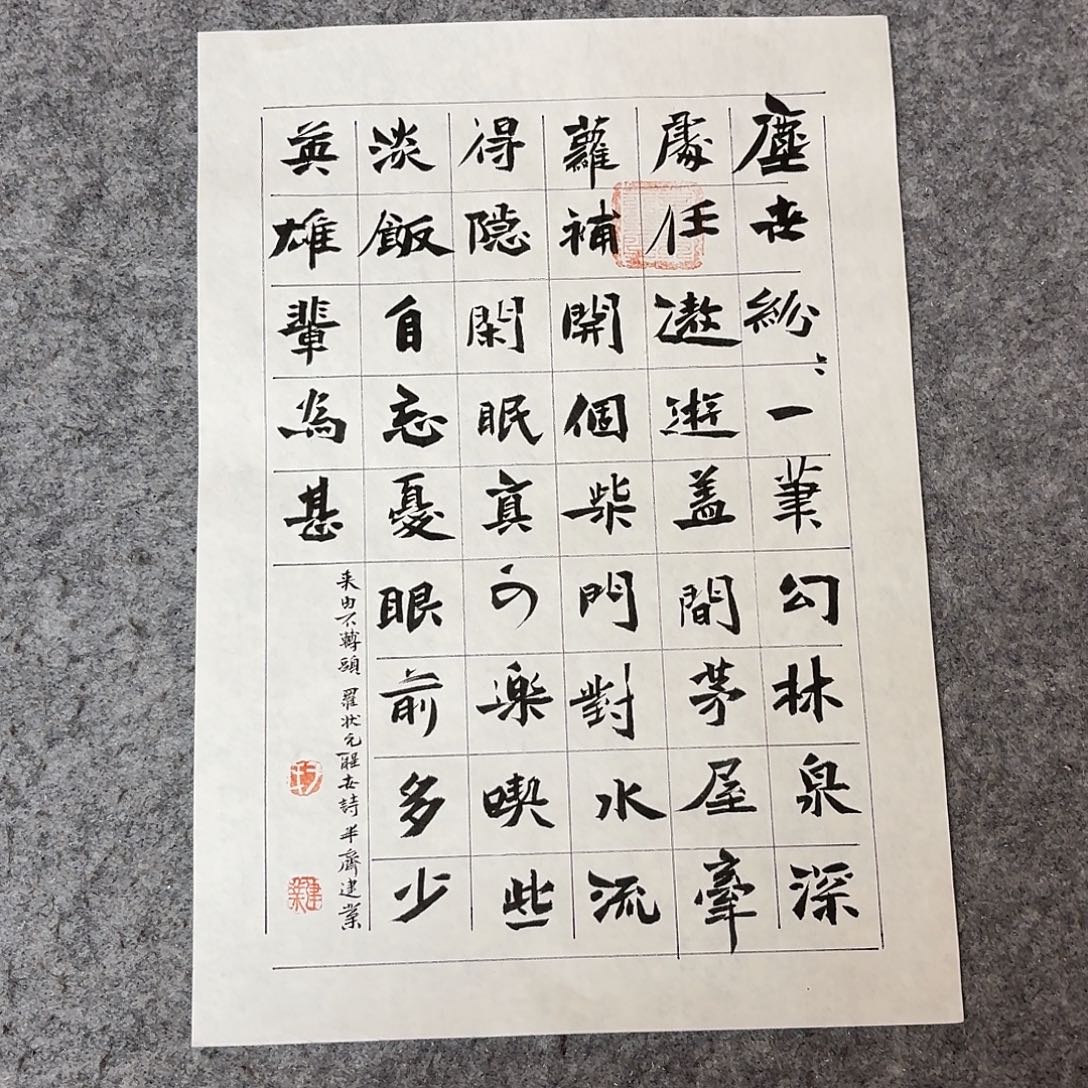 塵世紛〻一筆勾林泉深
處任遨遊蓋間茅屋牽
蘿補開個柴門對水流
得隱閑眠真可楽喫些
淡飯自忘憂眼前多少
英雄輩為甚
来由不轉頭 羅狀元醒世詩 半齋建業
建業